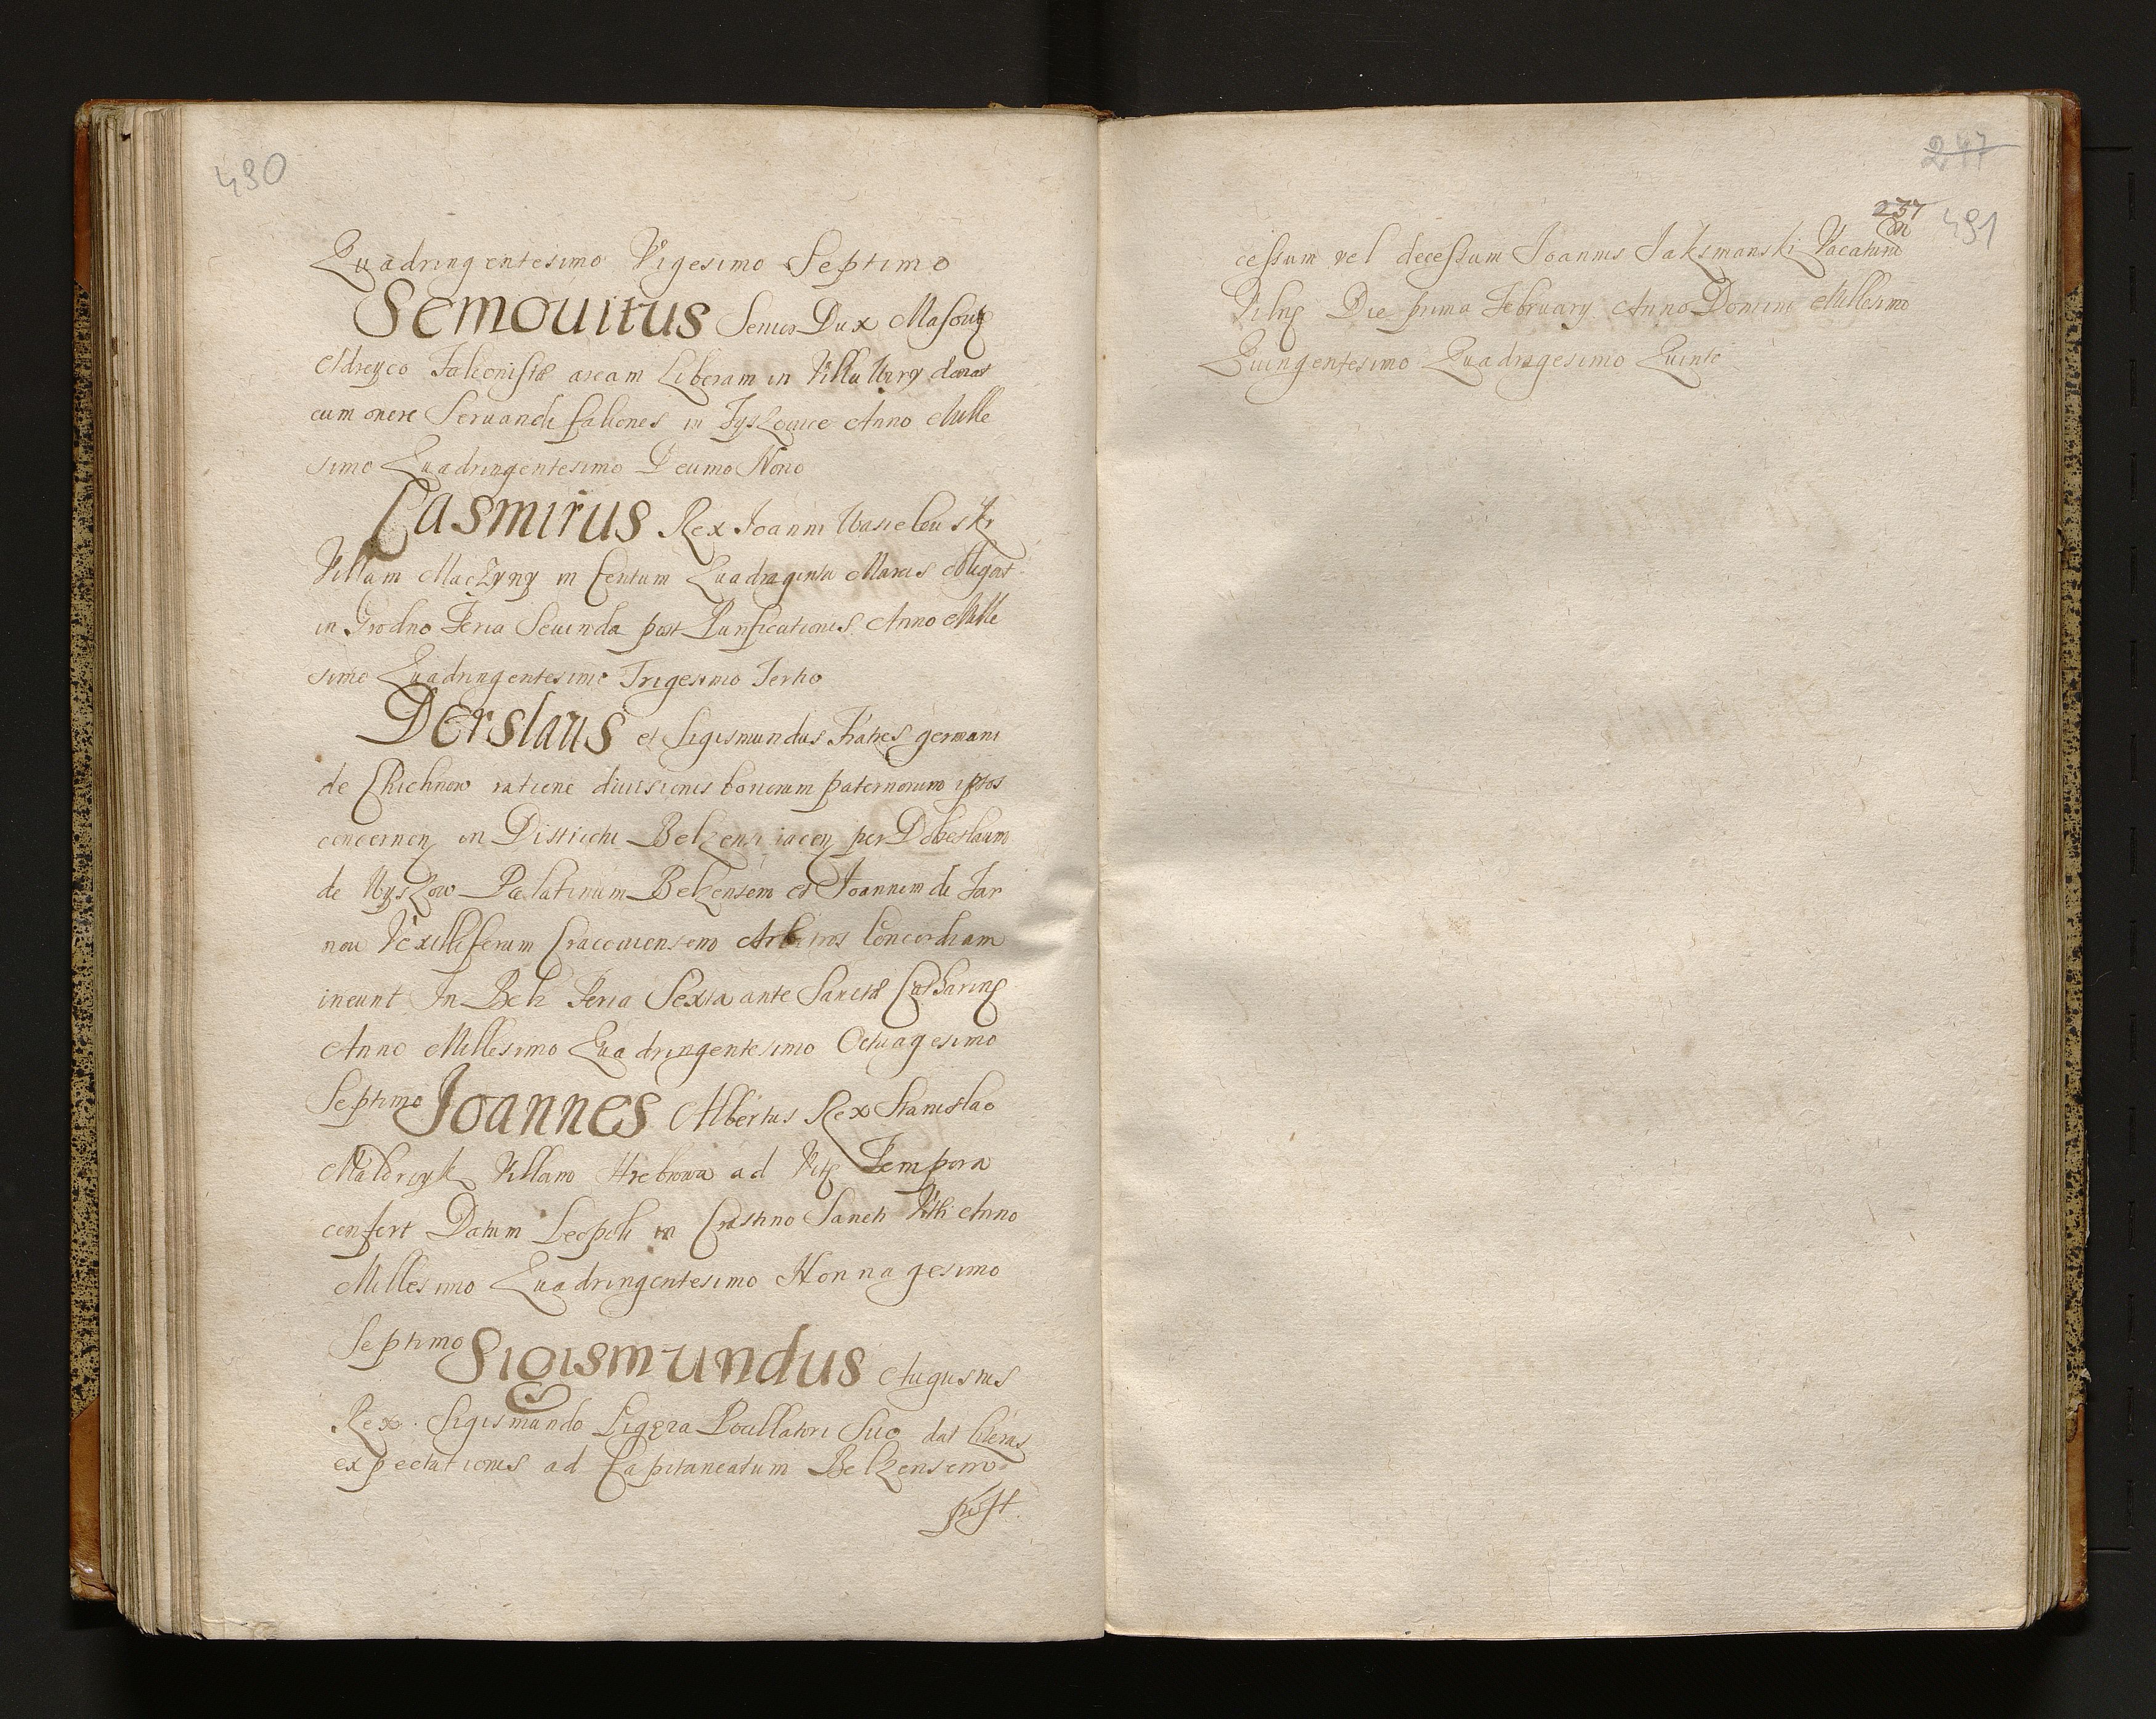 490
Quadringentesimo Vigesimo Septimo
Semouitus Senior Dux Masouię
Adreyco Falconistæ aream Liberam in Villa donat
cum onere Seruandi falcones in Tyszowce Anno Mille
simo Quadringentesimo Decimo Nono
Casmirus Rex Joanni Wasilewski
Villam Maczyny in Centum Quadraginta Marcis obligat
in Grodno Feria Secunda post Purificationis Anno Mille
simo Quadringentesimo Trigesimo Tertio
Derslaus et Sigismundus Fratres germani
de Chichnow ratione diuisionis bonorum paternorum ipsos
concernen in Districtu Belzensi iacen per Dobeslaum
de Wyszow Palatinum Belzensem et Joannem de Tar
now Vexilliferum Cracouiensem Arbitros Concordiam
ineunt In Belz Feria Sexta ante Sanctæ Catharinę
Anno Millesimo Quadringentesimo Octuagesimo
Septimo Joannes Albertus Rex Stanislao
Maldrzyk Villam Hrebowa ad Vitę Tempora
confert Datum Leopoli in Crastino Sancti Viti Anno
Millesimo Quadringentesimo Nonnagesimo
Septimo Sigismundus Augustus
Rex Sigismundo Ligęza Pocillatori Suo dat literas
expectationis ad Capitaneatum Belzensem
post
247
237
491
cessum vel decessum Joannis Jaksmanski Vacatum
Vilnę Die prima February Anno Domini Millesimo
Quingentesimo Quadragesimo Quinto